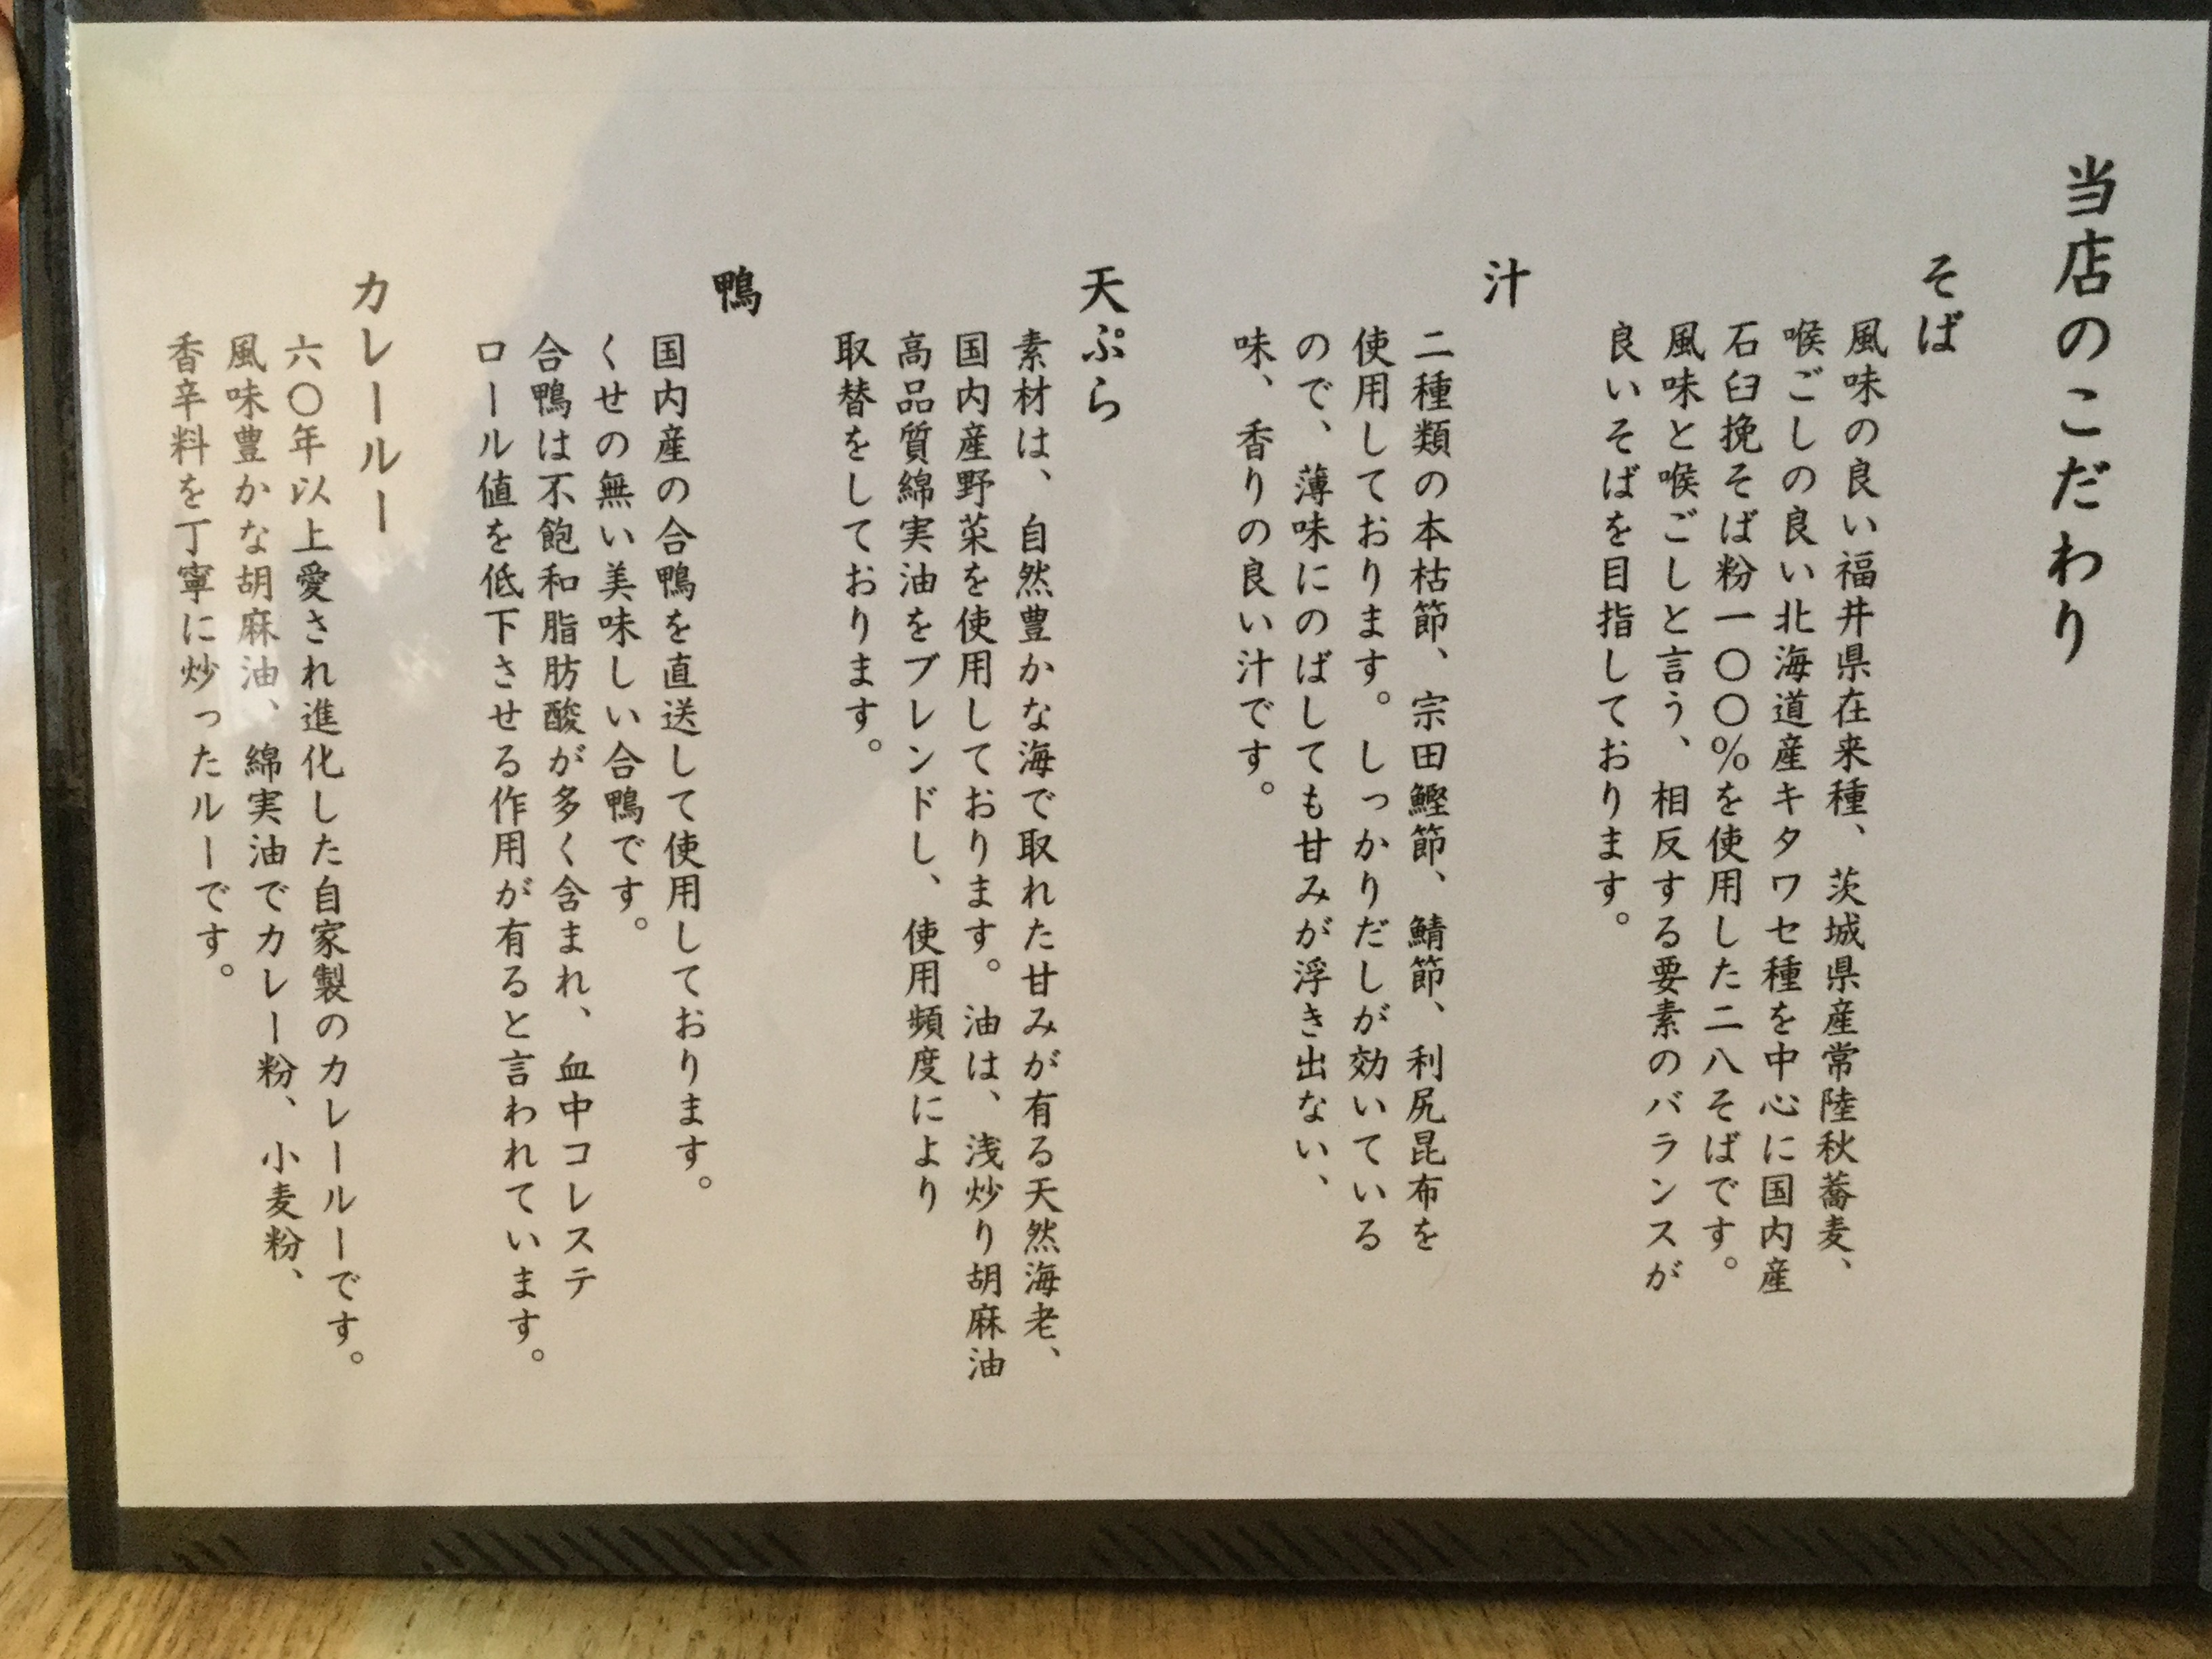 当店のこだわり
そば
風味の良い福井県在来種、茨城県産常陸秋蕎麦、
喉ごしの良い北海道産キタワセ種を中心に国内産
石臼挽そば粉一〇〇％を使用した二八そばです。
風味と喉ごしと言う、相反する要素のバランスが
良いそばを目指しております。
汁
二種類の本枯節、宗田鰹節、鯖節、利尻昆布を
使用しております。しっかりだしが効いている
ので、薄味にのばしても甘みが浮き出ない、
味、香りの良い汁です。
天ぷら
素材は、自然豊かな海で取れた甘みが有る天然海老、
国内産野菜を使用しております。油は、浅炒り胡麻油
高品質綿実油をブレンドし、使用頻度により
取替をしております。
鴨
国内産の合鴨を直送して使用しております。
くせの無い美味しい合鴨です。
合鴨は不飽和脂肪酸が多く含まれ、血中コレステ
ロール値を低下させる作用が有ると言われています。
カレールー
六〇年以上愛され進化した自家製のカレールーです。
風味豊かな胡麻油、綿実油でカレー粉、小麦粉、
香辛料を丁寧に炒ったルーです。